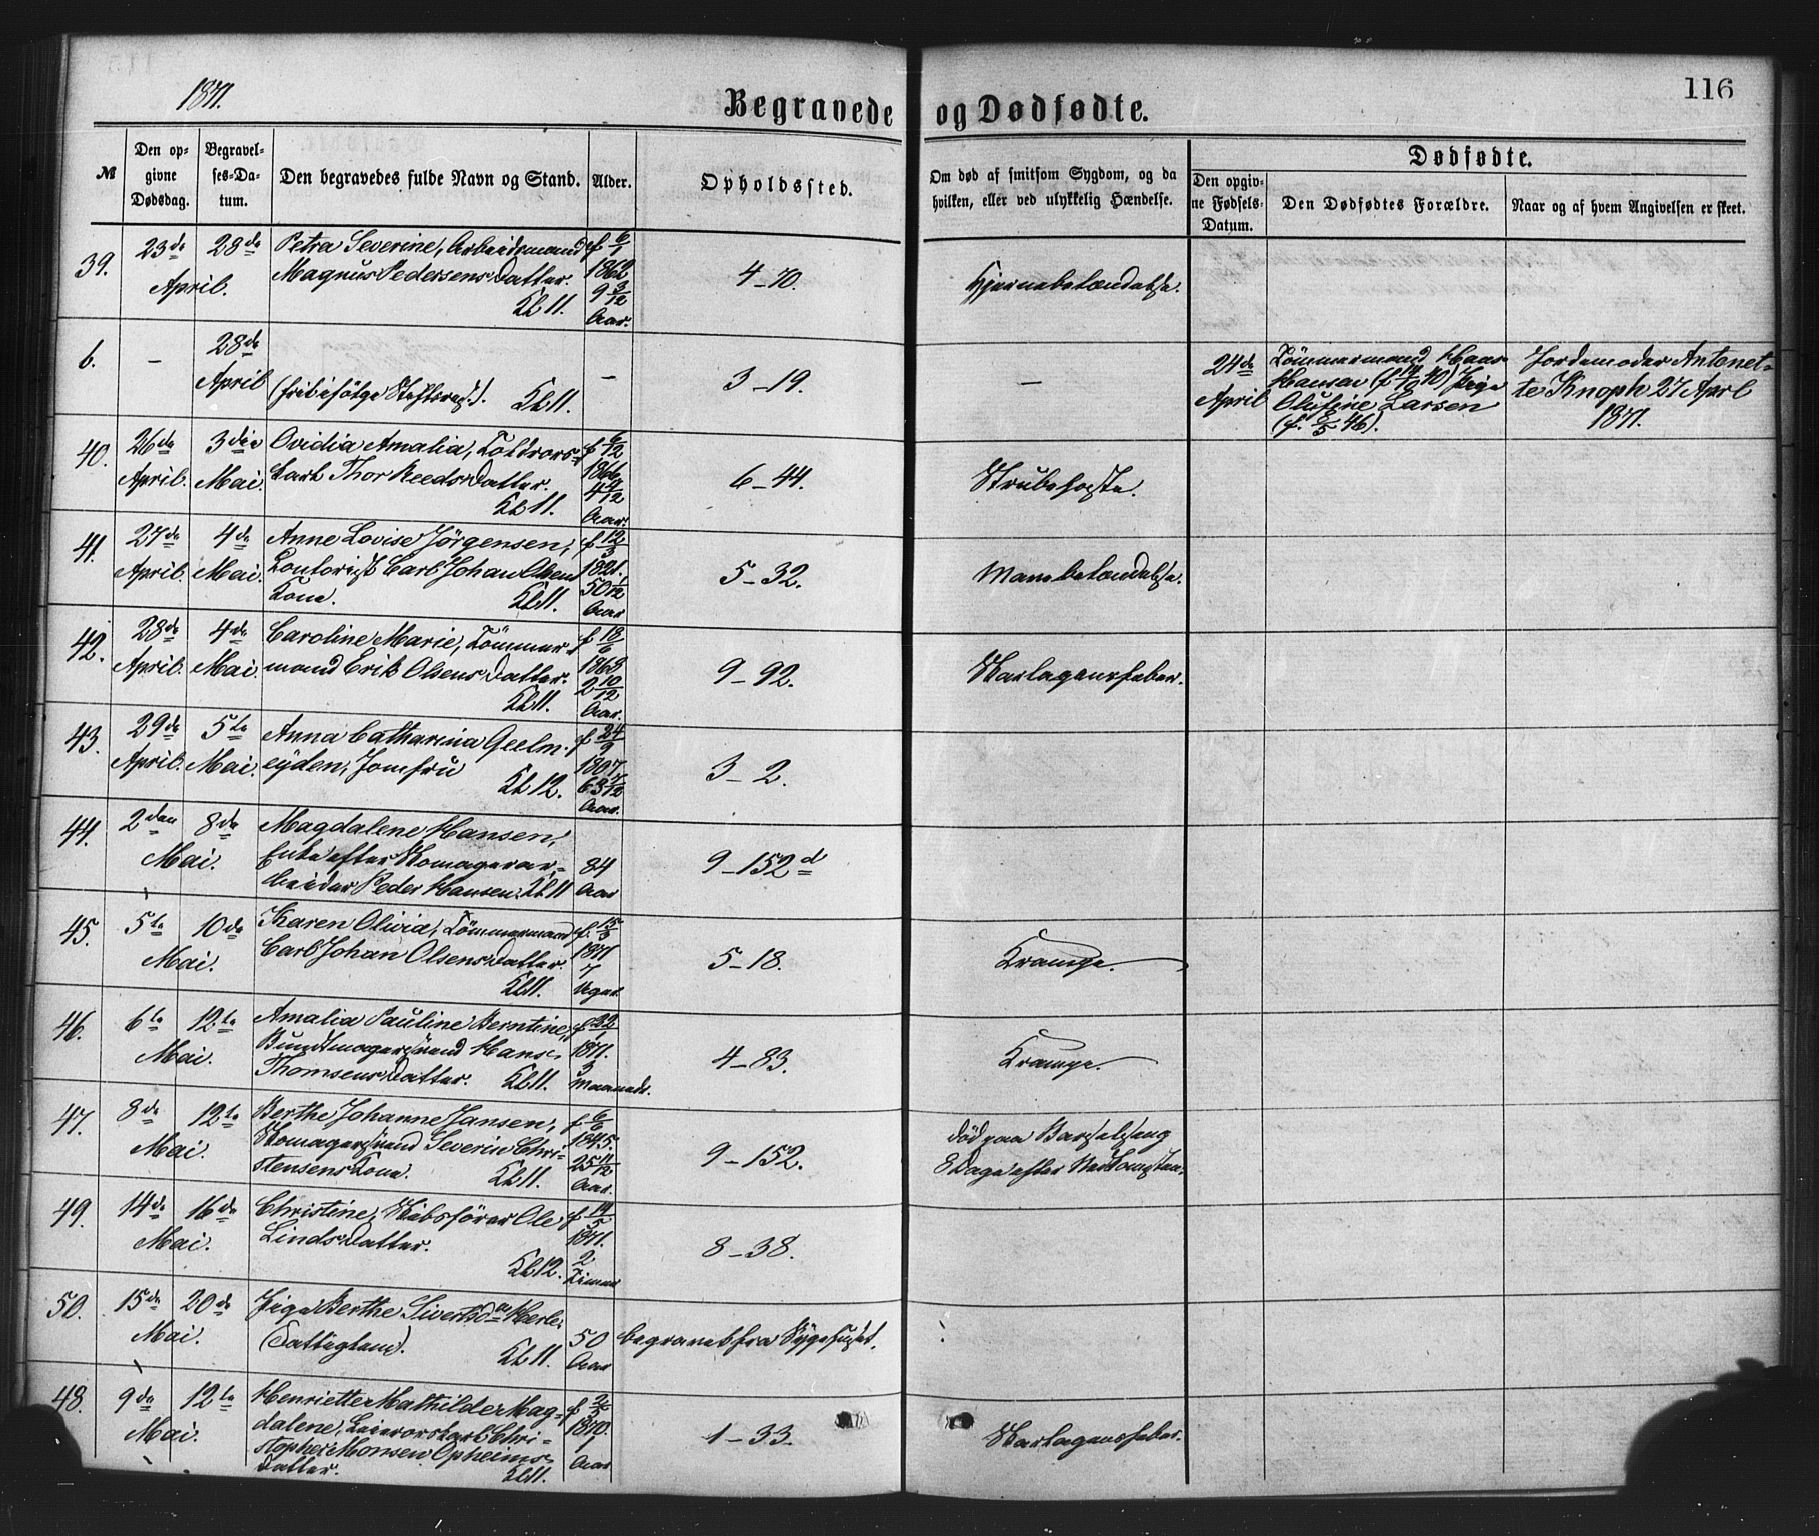 1871.
Begravede og Dødfødte.
116
№
Den opgivne Dødsdag.
Begravelses-Datum.
Den begravedes fulde Navn og Stand.
Alder.
Opholdssted.
Om død af smitsom Sygdom, og da hvilken, eller ved ulykkelig Hændelse.
Dødfødte.
Den opgivne Fødsels-Datum.
Den Dødfødtes Forældre.
Naar og af hvem Angivelsen er skeet.
39.
23de April.
28de
Petra Severine, Arbeidsmand
Magnus Pedersens Datter.
Kl 11.
f 6/1
1862
9 3/12
Aar.
4–70.
Hjernebetændelse.
6.
–
28de April
(fri ifølge Stiftsres.).
Kl 11.
–
3–19.
–
24de April
Tömmermand Hans
Hansen (f 14/10 40) Pige
Olufine Larsen
(f. 8/5 46).
Jordemoder Antonet-
te Knoph 27 April
1871.
40.
26de April.
3die Mai.
Ovidia Amalia, Toldrors-
karl Thor Reeds Datter.
Kl 11.
f 6/12
1866
4 4/12
Aar.
6–44.
Strubehoste.
41.
27de April.
4de Mai.
Anne Lovise Jörgensen,
Contorist Carl Johan Olsens
Kone.
Kl 11.
f 12/3
1821.
50 1/12
Aar
5–32.
Mavebetændelse.
42.
28de April.
4de Mai.
Caroline Marie, Tömmer-
mand Erik Olsens Datter.
Kl 11.
f 18/6
1868
2 10/12
Aar.
9–92.
Skarlagensfeber.
43.
29de April.
5te Mai.
Anna Catharina Geelm-
eyden, Jomfru
Kl 12.
f 24/9
1807
63 7/12
Aar.
3–2.
44.
2den Mai.
8de
Magdalene Hansen,
Enke efter Skomagerar-
beider Peder Hansen. Kl 11
84
Aar
9–152d
45.
5te Mai.
10de
Karen Olivia, Tömmermand
Carl Johan Olsens Datter.
Kl 11.
f. 15/3
1871
7
Uger.
5–18.
Krampe.
46.
6te Mai.
12te
Amalia Pauline Berntine,
Bundtmagersvend Hans
Thomsens Datter. Kl 11.
f 22/1
1871.
3
Maaneder.
4–83.
Krampe.
47.
8de Mai.
12te
Berthe Johanne Jansen,
Skomagersvend Severin Chri-
stensens Kone. Kl 11.
f 6/6
1845.
25 11/12
Aar.
9–152.
død paa Barselseng
8 Dage efter Nedkomsten.
49.
14de Mai.
16de
Christine, Skibsförer Ole
Linds Datter.
Kl 12.
f 14/5
1871.
2
Timer
8–38.
50.
15de Mai.
20de
Pige Berthe Sivertsda Herle
(Fattiglem).
Kl 11.
50
Aar
begravet fra Sygehuset.
48.
9de Mai.
12te
Henriette Mathilde Mag-
dalene, Leierorskarl Chri-
stopher Monsen Opheims
Datter. Kl 11.
f 2/5
1870.
1
Aar
1–33.
Skarlagensfeber.